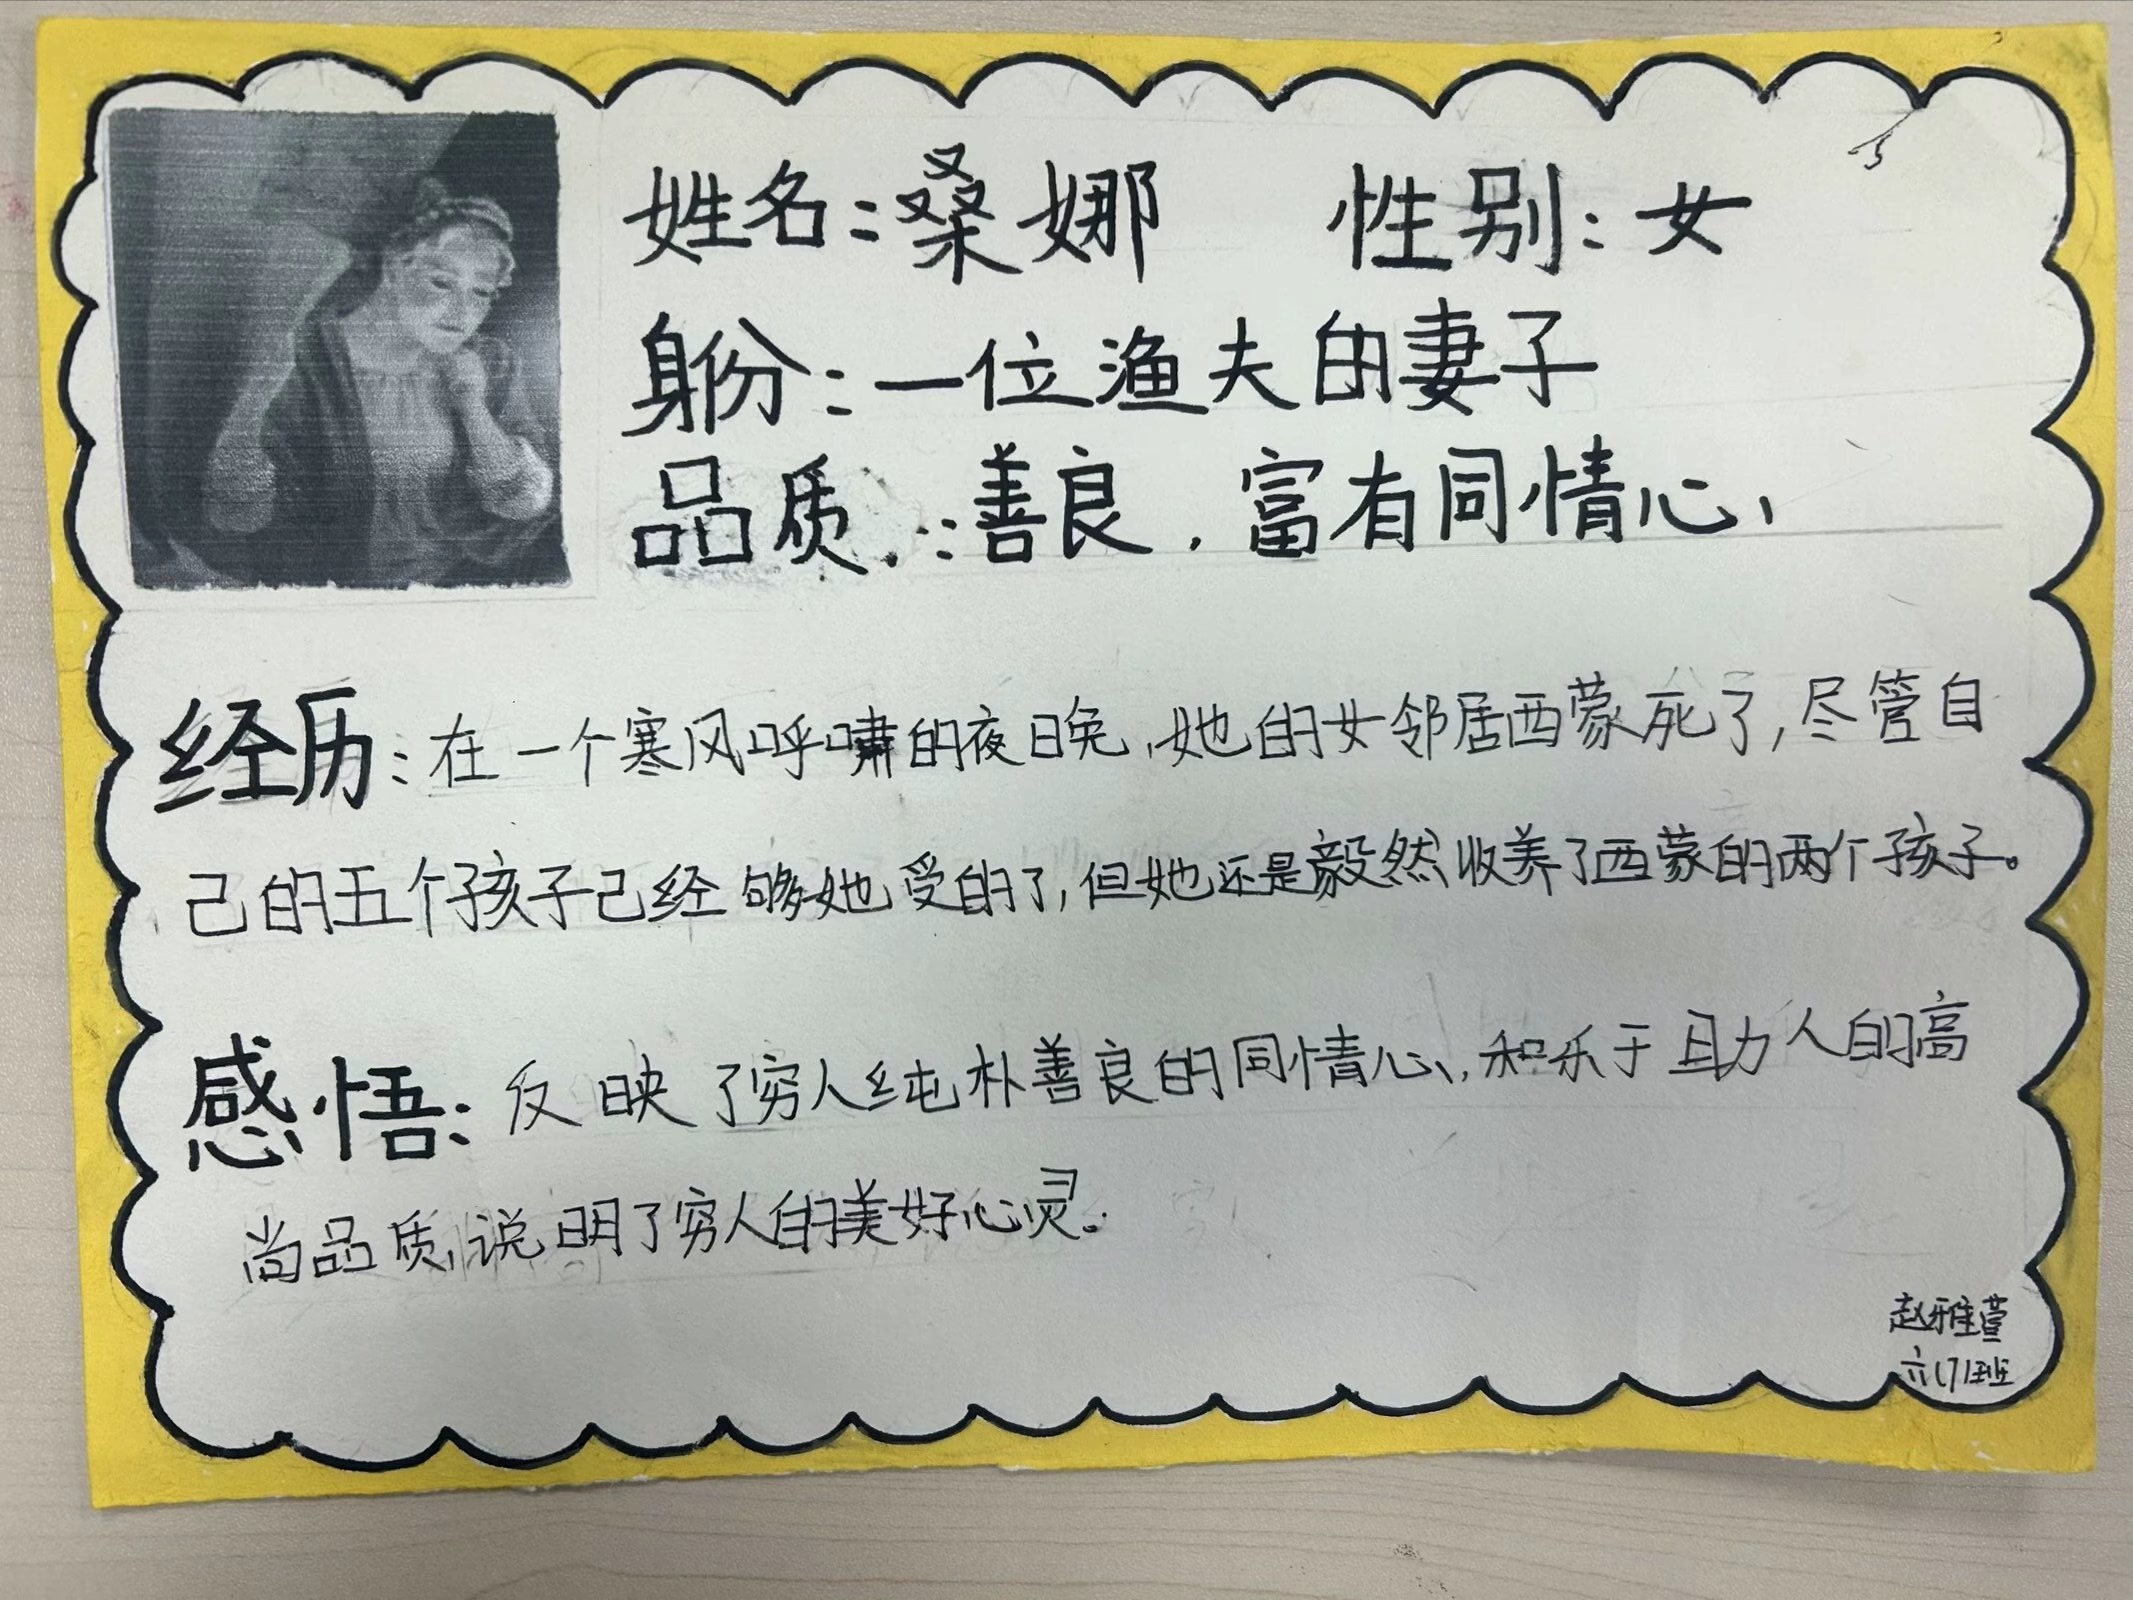 姓名：桑娜 性别：女
身份：一位渔夫的妻子
品质：善良，富有同情心、
经历：在一个寒风呼啸的夜晚，她的女邻居西蒙死了，尽管自
己的五个孩子已经够她受的了，但她还是毅然收养了西蒙的两个孩子。
感悟：反映了穷人纯朴善良的同情心，和乐于助人的高
尚品质，说明了穷人的美好心灵。
赵雅萱
六(7)班